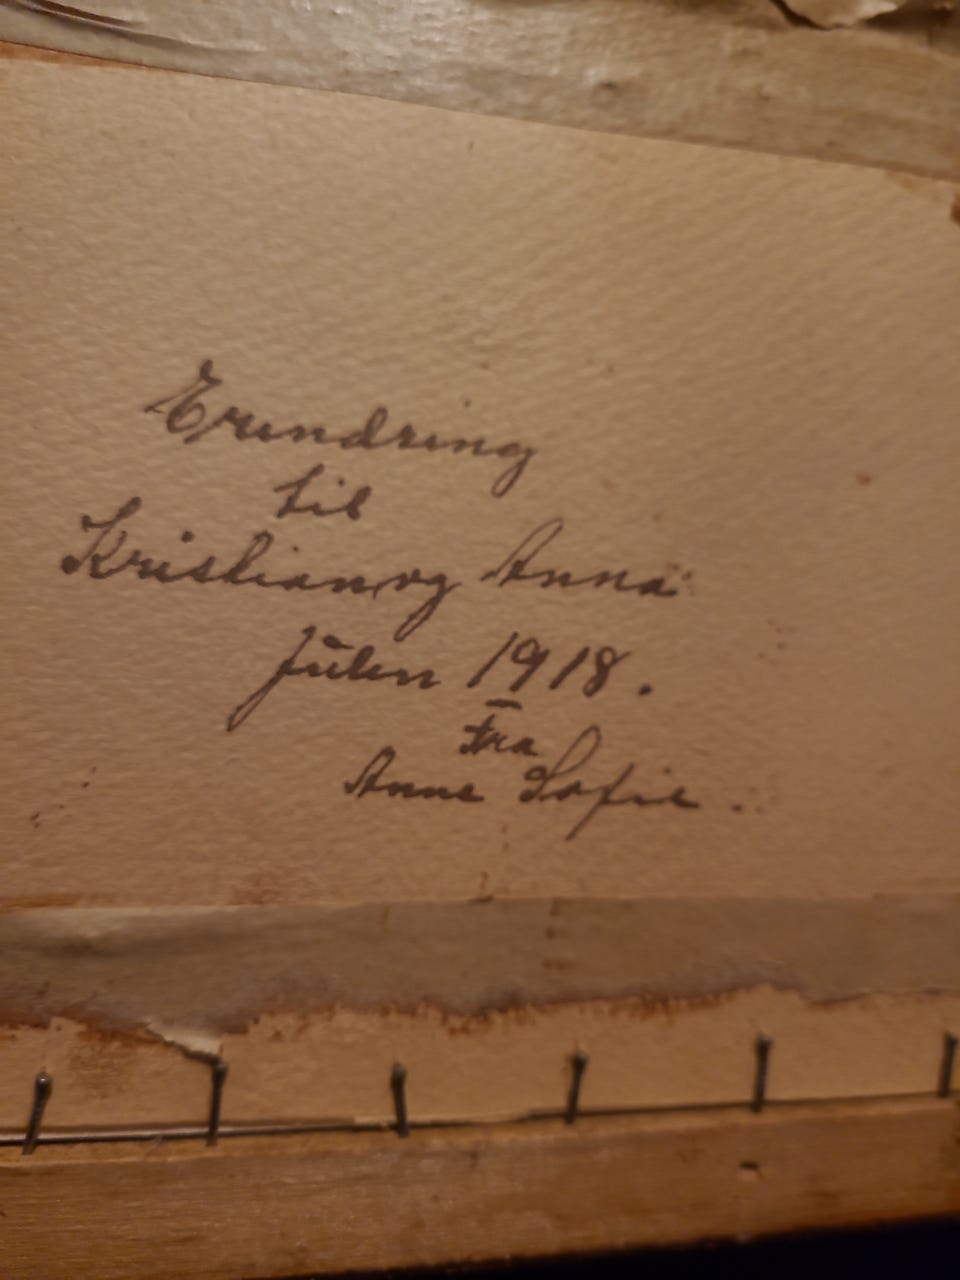 Erendring
til
Kristian og Anna
Julen 1918.
Fra
Anne Sofie.